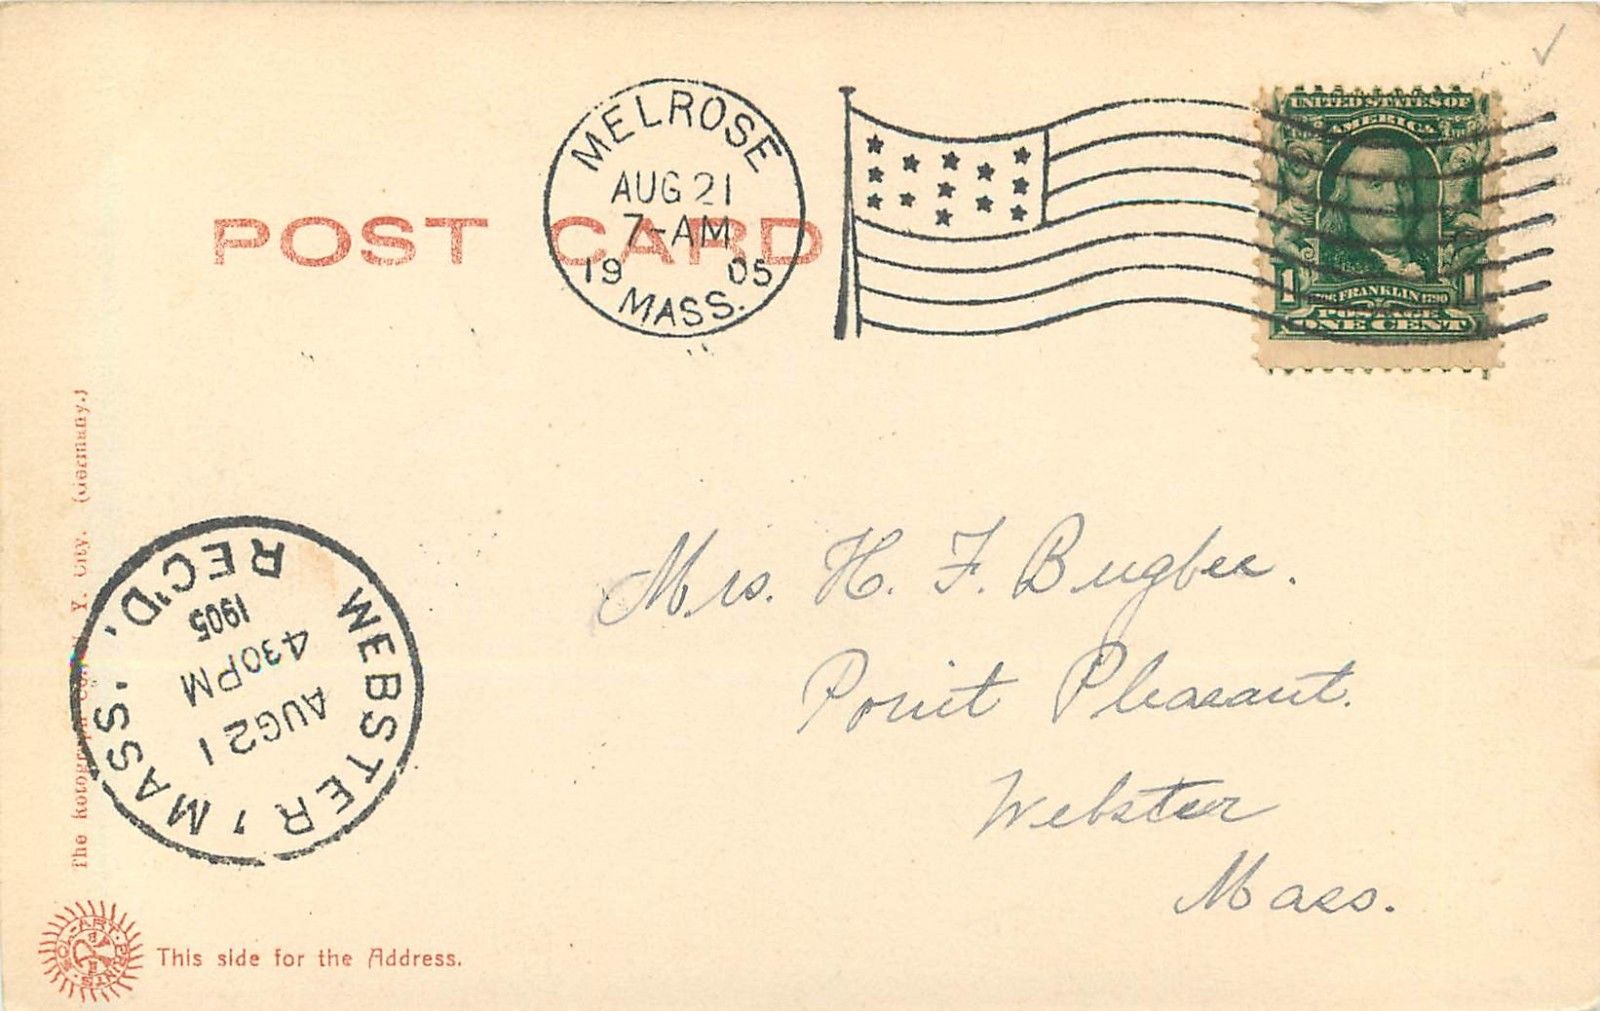 POST CARD
MELROSE
AUG 21
7-AM
19 05
MASS.
UNITED STATES OF
AMERICA
1 FRANKLIN 1790 1
POSTAGE
ONE CENT
Mrs. H. F. Bugbee.
Point Pleasant.
Webster
Mass.
WEBSTER, MASS.
AUG 21
4 30 PM
1905
REC'D.
The Rotograph Co., N. Y. City. (Germany.)
SOL-ART PRINTS
This side for the Address.